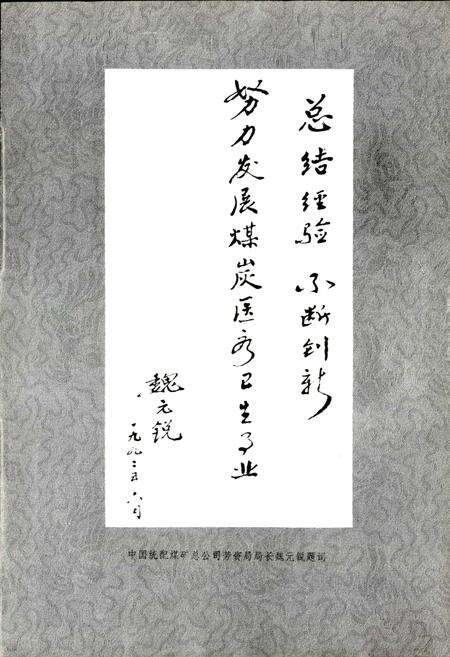 总结经验 不断创新
努力发展煤炭医疗卫生事业
魏元锐
一九九二年六月
中国统配煤矿总公司劳资局局长魏元锐题词